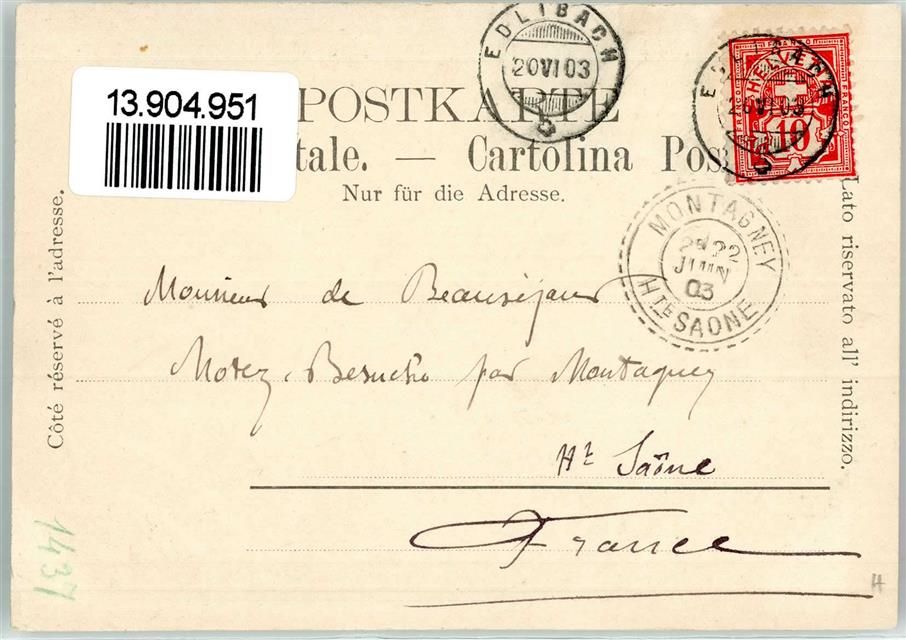 EDLIBACH
20 VI 03
EDLIBACH
20 VI 03
HELVETIA
FRANCO
FRANCO
10
13.904.951
POSTKARTE
tale. — Cartolina Pos
Nur für die Adresse.
Côté réservé à l'adresse.
Lato riservato all' indirizzo.
MONTAGNEY
22
JUIN
03
HTE SAONE
Monsieur de Beauséjour
Motey-Besuche par Montagney
Hte Saône
France
1437
H